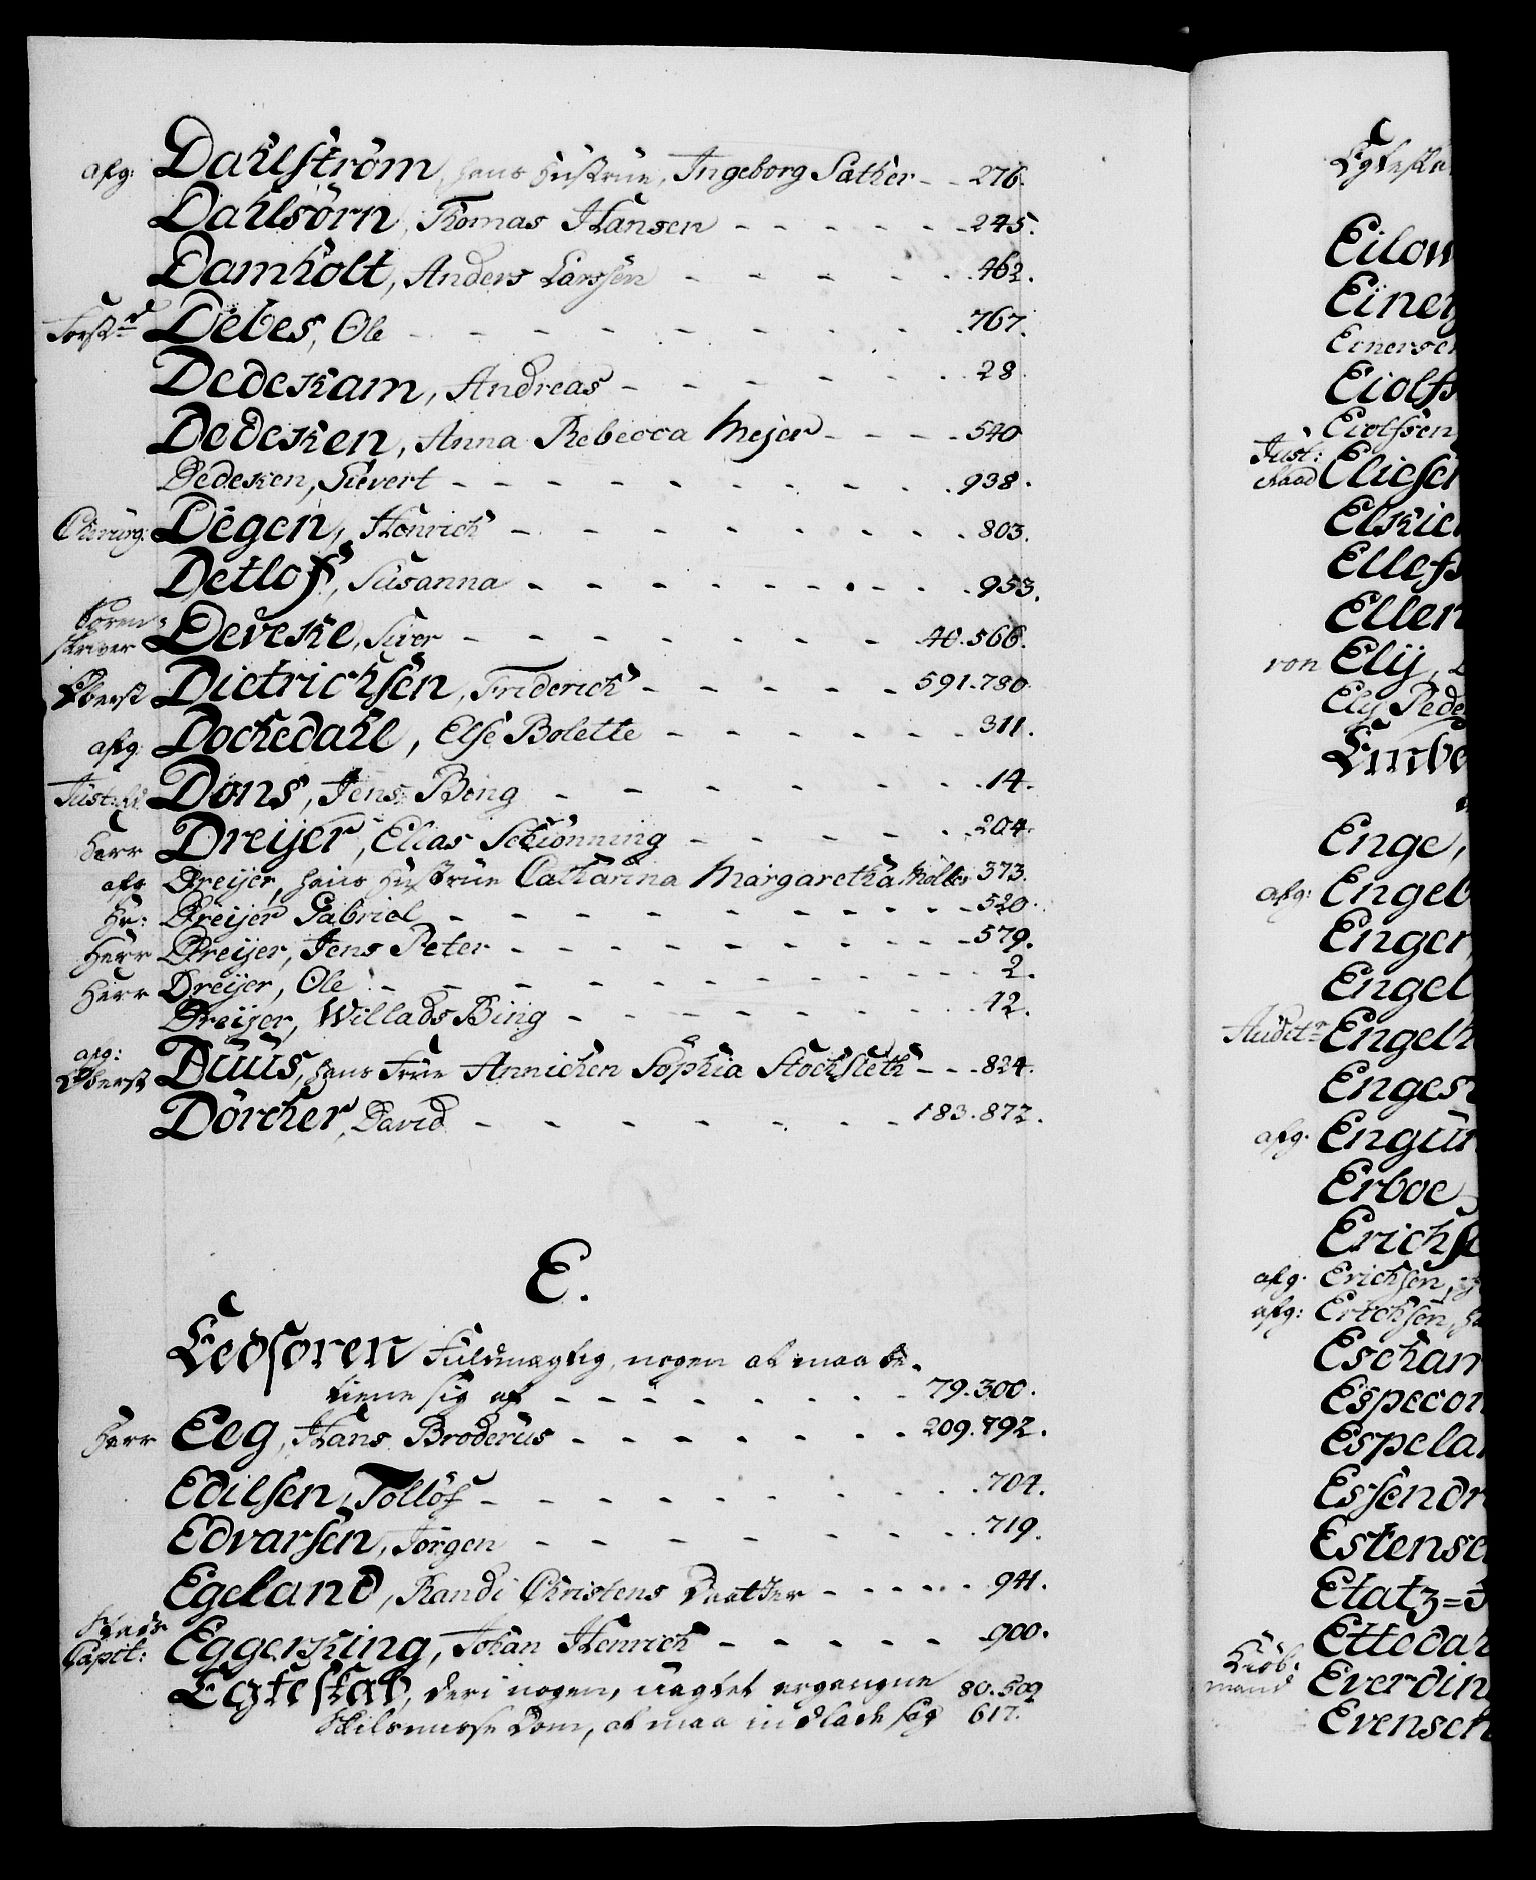 afg: Dahlström, hans Hustrue, Ingeborg Sather - - 276.
Dahlsörn, Thomas Hansen - - - - - - 245.
Damholt, Anders Larssen - - - - - 462.
Debes, Ole - - - - - - - - - 767.
Dedekam, Andreas - - - - - - 28.
Dedeken, Anna Rebecca Meyer - - - - 540
Dedeken, Sievert - - - - - - - - - 938.
Chirurg: Degen, Henrich - - - - - - - - 803.
Detlof, Susanna - - - - - - - - 953.
Soren=
skriver Deveke, Siver - - - - - - - - 40.566.
Oberst Dietrichsen, Friderich - - - - - 591.780.
afg. Dochedahl, Else Bolette - - - - - - 311.
Just:Rd. Dons, Jens Bing - - - - - - - 14.
Herr Dreijer, Elias Schiønning - - - - - 204.
afg Dreijer, hans Hustrue Catharina Margaretha Møller 373.
Hr: Dreijer Gabriel - - - - - - - - - 520.
Herr Dreijer, Jens Peter - - - - - - - - 579.
Herr Dreijer, Ole - - - - - - - - - - 2.
Dreijer, Willads Bing - - - - - - - 12.
afg:
Oberst Duus, hans Frue Annichen Sophia Stochfleth - - - 824.
Dörcher, David - - - - - - - - 183.872.
E.
Eedsoren Fuldmægtig, nogen at maa be-
tiene sig af - - - - - - - 79.300.
Herr Eeg, Hans Broderus - - - - - - - 209.792.
Edilsen, Tollöf - - - - - - - - - 704.
Edvarsen, Jørgen - - - - - - - - 719.
Egeland, Randi Christens Daatter - - - - - 941.
Stads
Capit: Eggerking, Johan Henrich - - - - - 900.
Egteskab, deri nogen, uagtet ergangne 80.509
Skilsmisse Dom, at maa indlade sig 617.
Egteska
Eilow
Einer
Einersen
Eiolfs
Eiolfsen
Just:
Raad Eliesen
Elkier
Ellefs
Ellen
von Elij,
Elij Pede
Embe
Enge,
afg: Engeb
Enger,
Engel
Auditr Engelh
Enges
afg. Engun
Erboe
Erichse
afg. Erichsen,
afg: Erichsen,
Eschan
Especon
Espelan
Essendr
Estense
Etatz=
Ettedah
Kiøb:
mand Everdin
Evensen